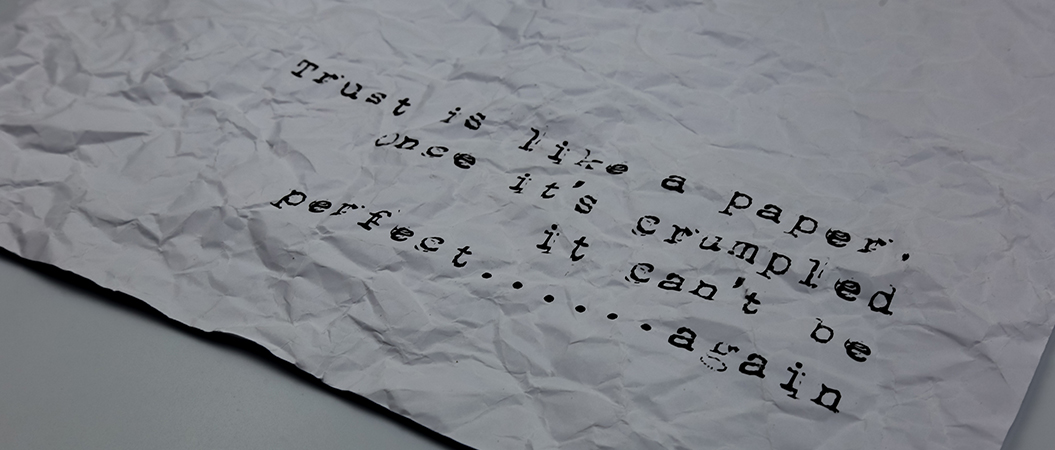 Trust is like a paper.
once it's crumpled
it can't be
perfect......again